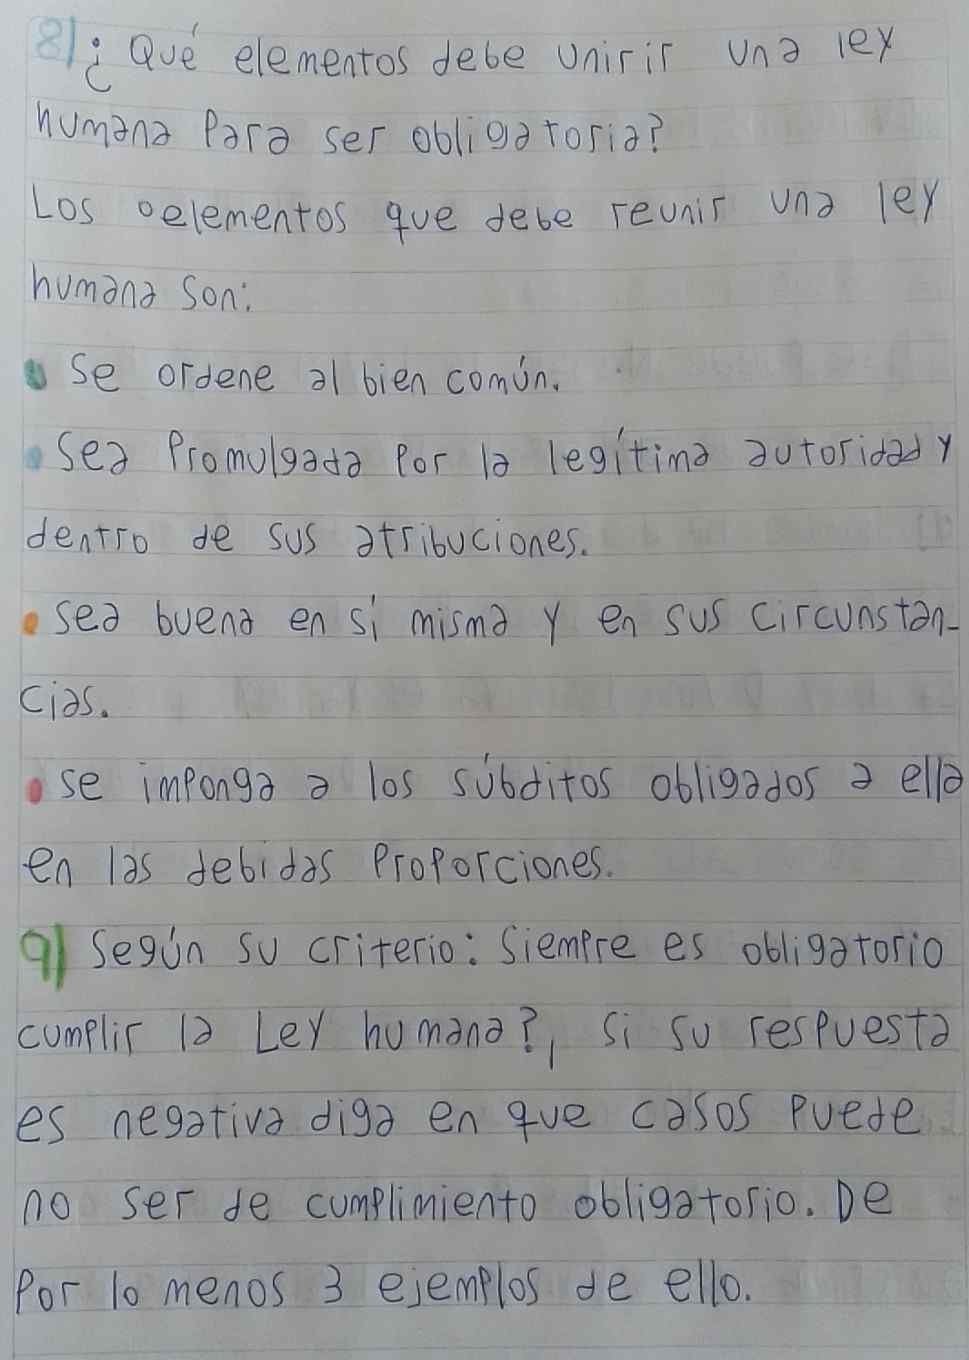 8) ¿Qué elementos debe unirir una ley
humana para ser obligatoria?
Los oelementos que debe reunir una ley
humana son:
• Se ordene al bien común.
• Sea Promulgada Por la legítima autoridad y
dentro de sus atribuciones.
• sea buena en sí misma y en sus circunstan-
cias.
• se imponga a los súbditos obligados a ella
en las debidas Proporciones.
9) Según su criterio: Siempre es obligatorio
cumplir la Ley humana?, si su respuesta
es negativa diga en que casos Puede
no ser de cumplimiento obligatorio. De
Por lo menos 3 ejemplos de ello.